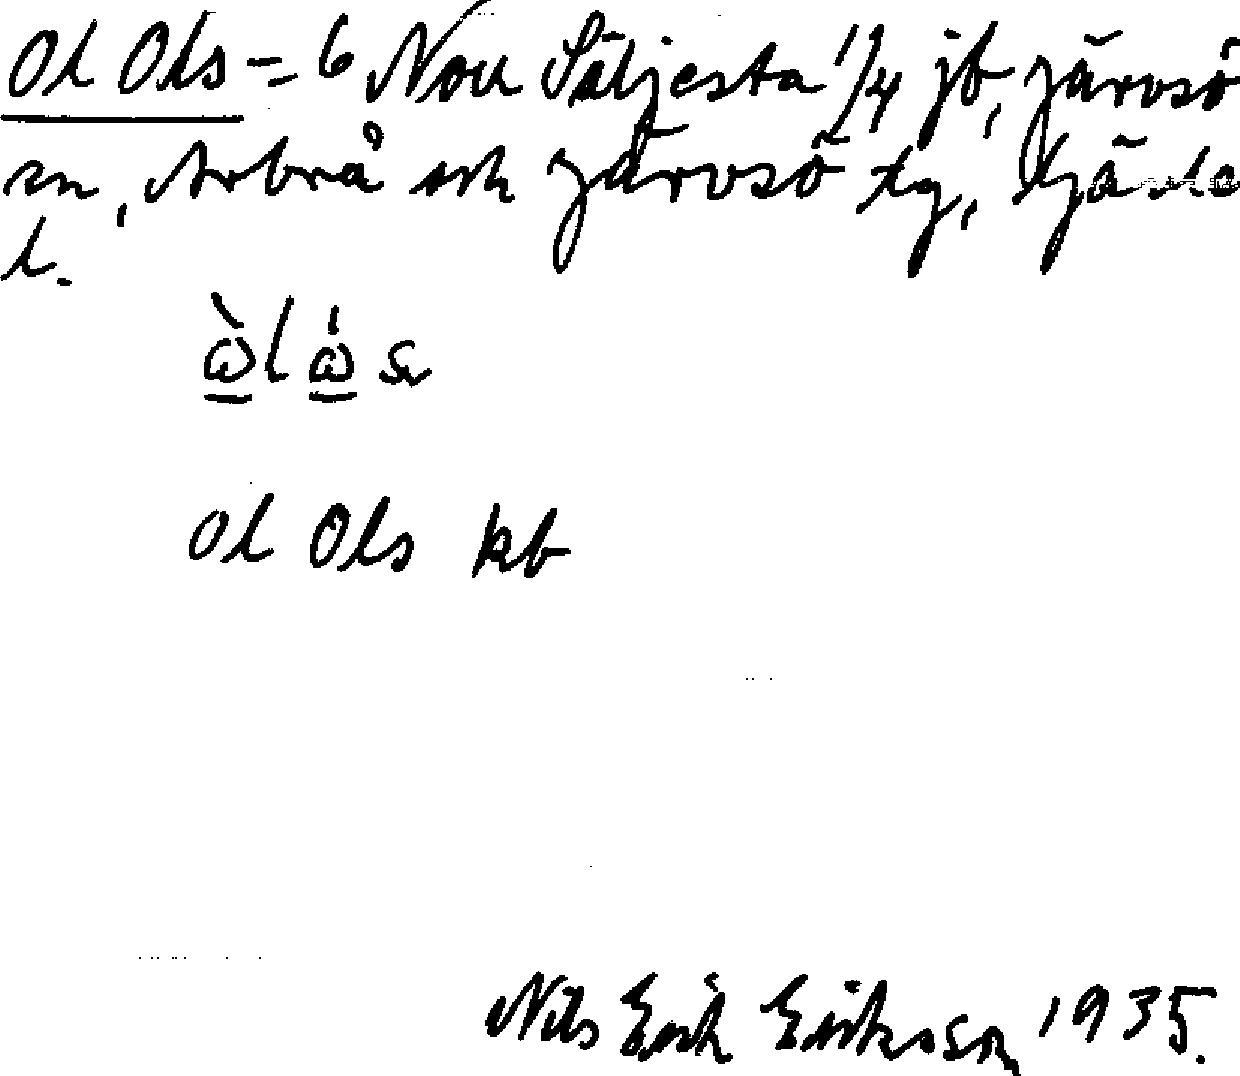 Ol Ols = 6 Norr Säljesta 1/4 jb, Järvsö
sn, Arbrå och Järvsö tg, Gävle
l.
ὼlώs
Ol Ols kb
Nils Erik Eriksson 1935.